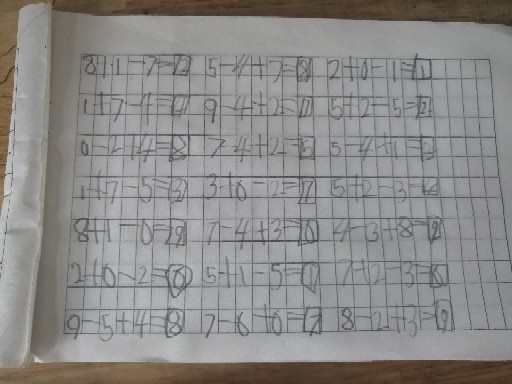 8+1-7=2 5-4+7=8 2+0-1=1
1+7-4=4 9-4+2=7 5+2-5=2
7-4+2=5 5-4+1=2
1+7-5=3 5+2-3=4
8+1-0=9 7-4+3=6 4-3+8=9
2+0-2=0 5+1-5=1 7+2-3=6
9-5+4=8 8-2+3=9